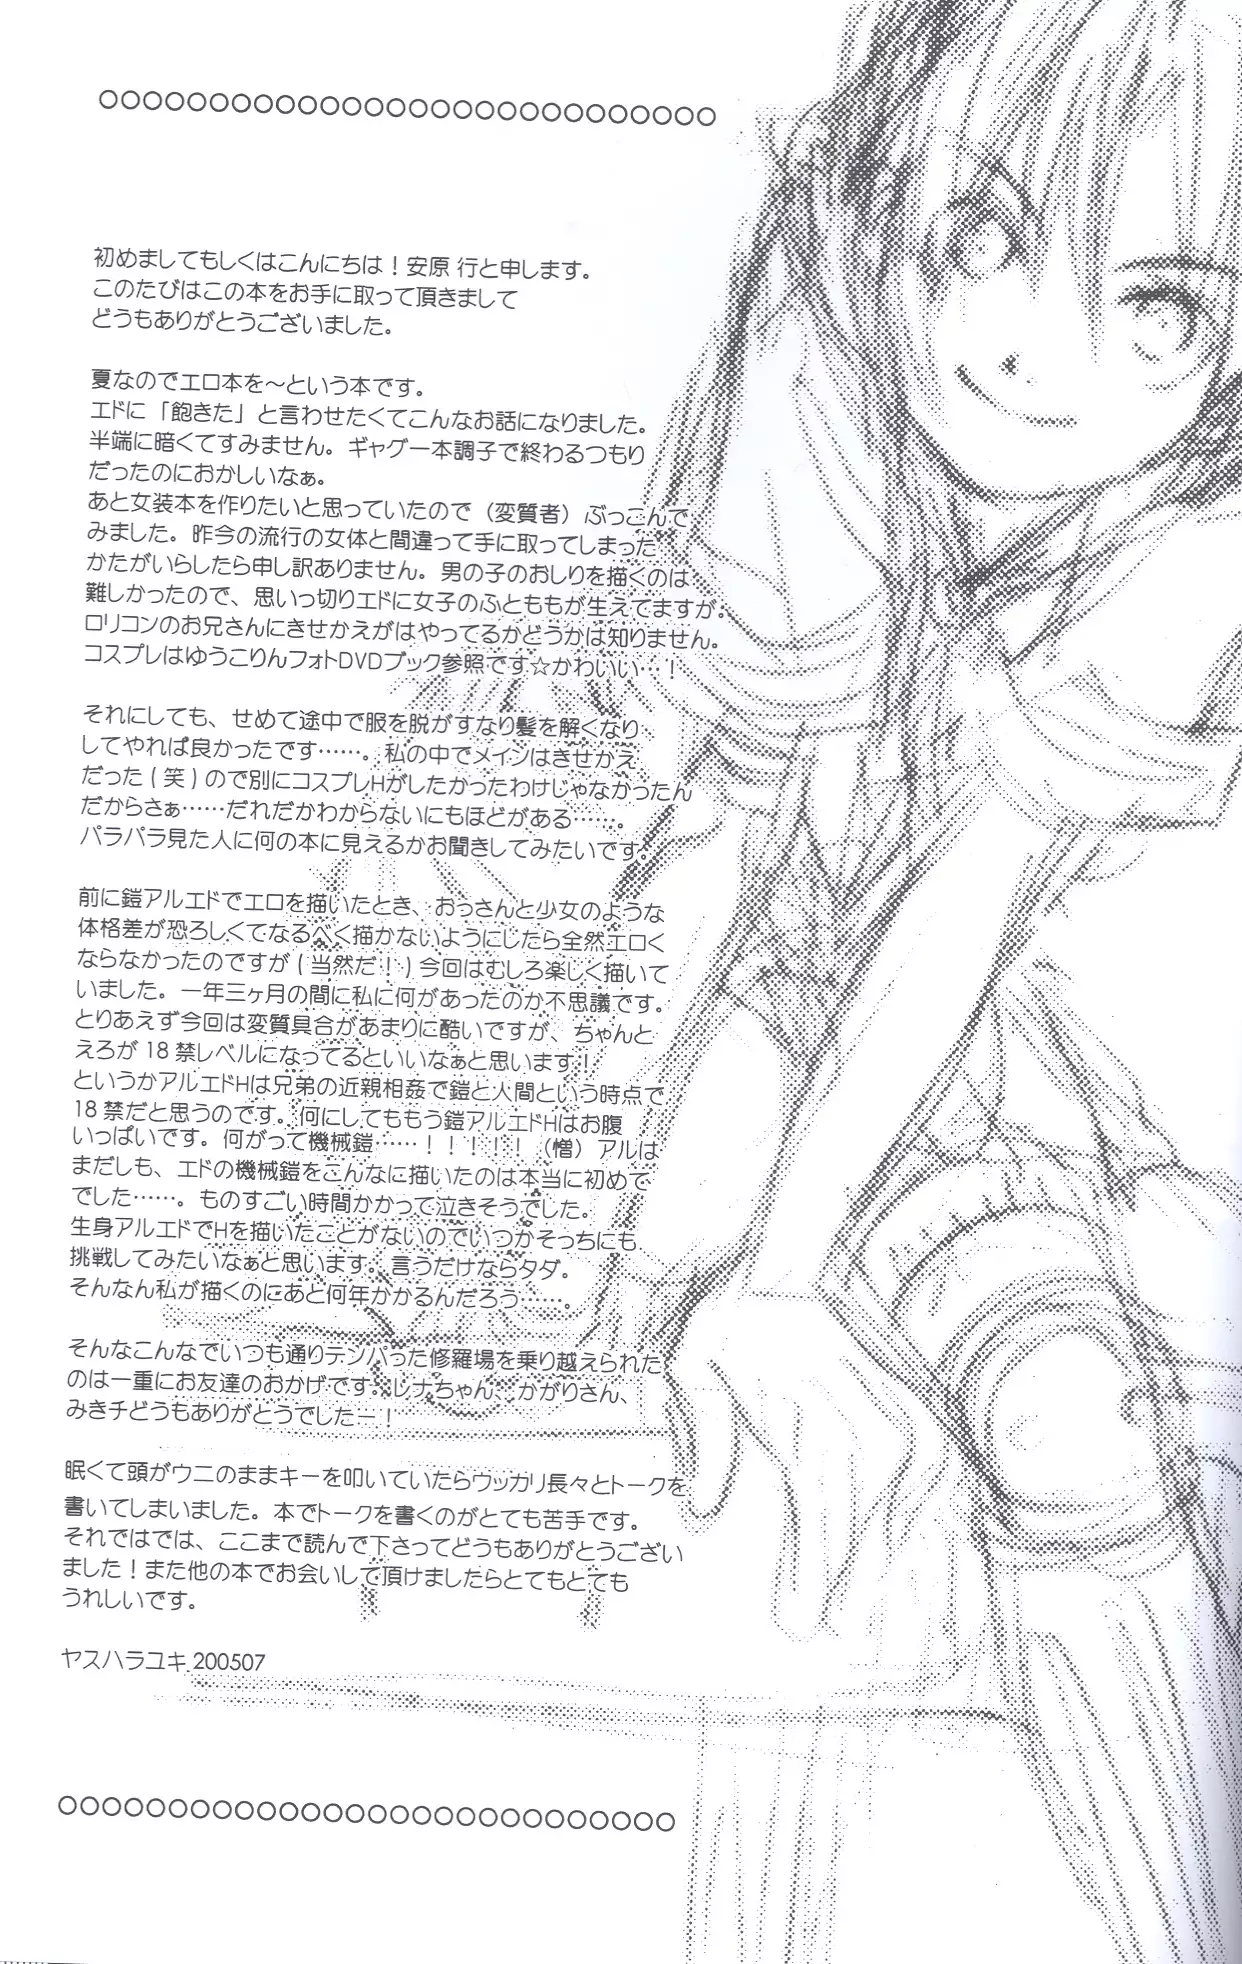 ○○○○○○○○○○○○○○○○○○○○○○○○○○○○
初めましてもしくはこんにちは！安原 行と申します。
このたびはこの本をお手に取って頂きまして
どうもありがとうございました。
夏なのでエロ本を～という本です。
エドに「飽きた」と言わせたくてこんなお話になりました。
半端に暗くてすみません。ギャグ一本調子で終わるつもり
だったのにおかしいなぁ。
あと女装本を作りたいと思っていたので（変質者）ぶっこんで
みました。昨今の流行の女体と間違って手に取ってしまった
かたがいらしたら申し訳ありません。男の子のおしりを描くのは
難しかったので、思いっ切りエドに女子のふとももが生えてますが。
ロリコンのお兄さんにきせかえがはやってるかどうかは知りません。
コスプレはゆうこりんフォトDVDブック参照です☆かわいい…！
それにしても、せめて途中で服を脱がすなり髪を解くなり
してやれば良かったです……。私の中でメインはきせかえ
だった(笑)ので別にコスプレHがしたかったわけじゃなかったん
だからさぁ……だれだかわからないにもほどがある……。
パラパラ見た人に何の本に見えるかお聞きしてみたいです。
前に鎧アルエドでエロを描いたとき、おっさんと少女のような
体格差が恐ろしくてなるべく描かないようにしたら全然エロく
ならなかったのですが(当然だ！)今回はむしろ楽しく描いて
いました。一年三ヶ月の間に私に何があったのか不思議です。
とりあえず今回は変質具合があまりに酷いですが、ちゃんと
えろが18禁レベルになってるといいなぁと思います！
というかアルエドHは兄弟の近親相姦で鎧と人間という時点で
18禁だと思うのです。何にしてももう鎧アルエドHはお腹
いっぱいです。何がって機械鎧……！！！！！（憎）アルは
まだしも、エドの機械鎧をこんなに描いたのは本当に初めて
でした……。ものすごい時間かかって泣きそうでした。
生身アルエドでHを描いたことがないのでいつかそっちにも
挑戦してみたいなぁと思います。言うだけならタダ。
そんなん私が描くのにあと何年かかるんだろう……。
そんなこんなでいつも通りテンパった修羅場を乗り越えられた
のは一重にお友達のおかげです。レナちゃん、かがりさん、
みきチどうもありがとうでしたー！
眠くて頭がウニのままキーを叩いていたらウッカリ長々とトークを
書いてしまいました。本でトークを書くのがとても苦手です。
それではでは、ここまで読んで下さってどうもありがとうござい
ました！また他の本でお会いして頂けましたらとてもとても
うれしいです。
ヤスハラユキ 200507
○○○○○○○○○○○○○○○○○○○○○○○○○○○○